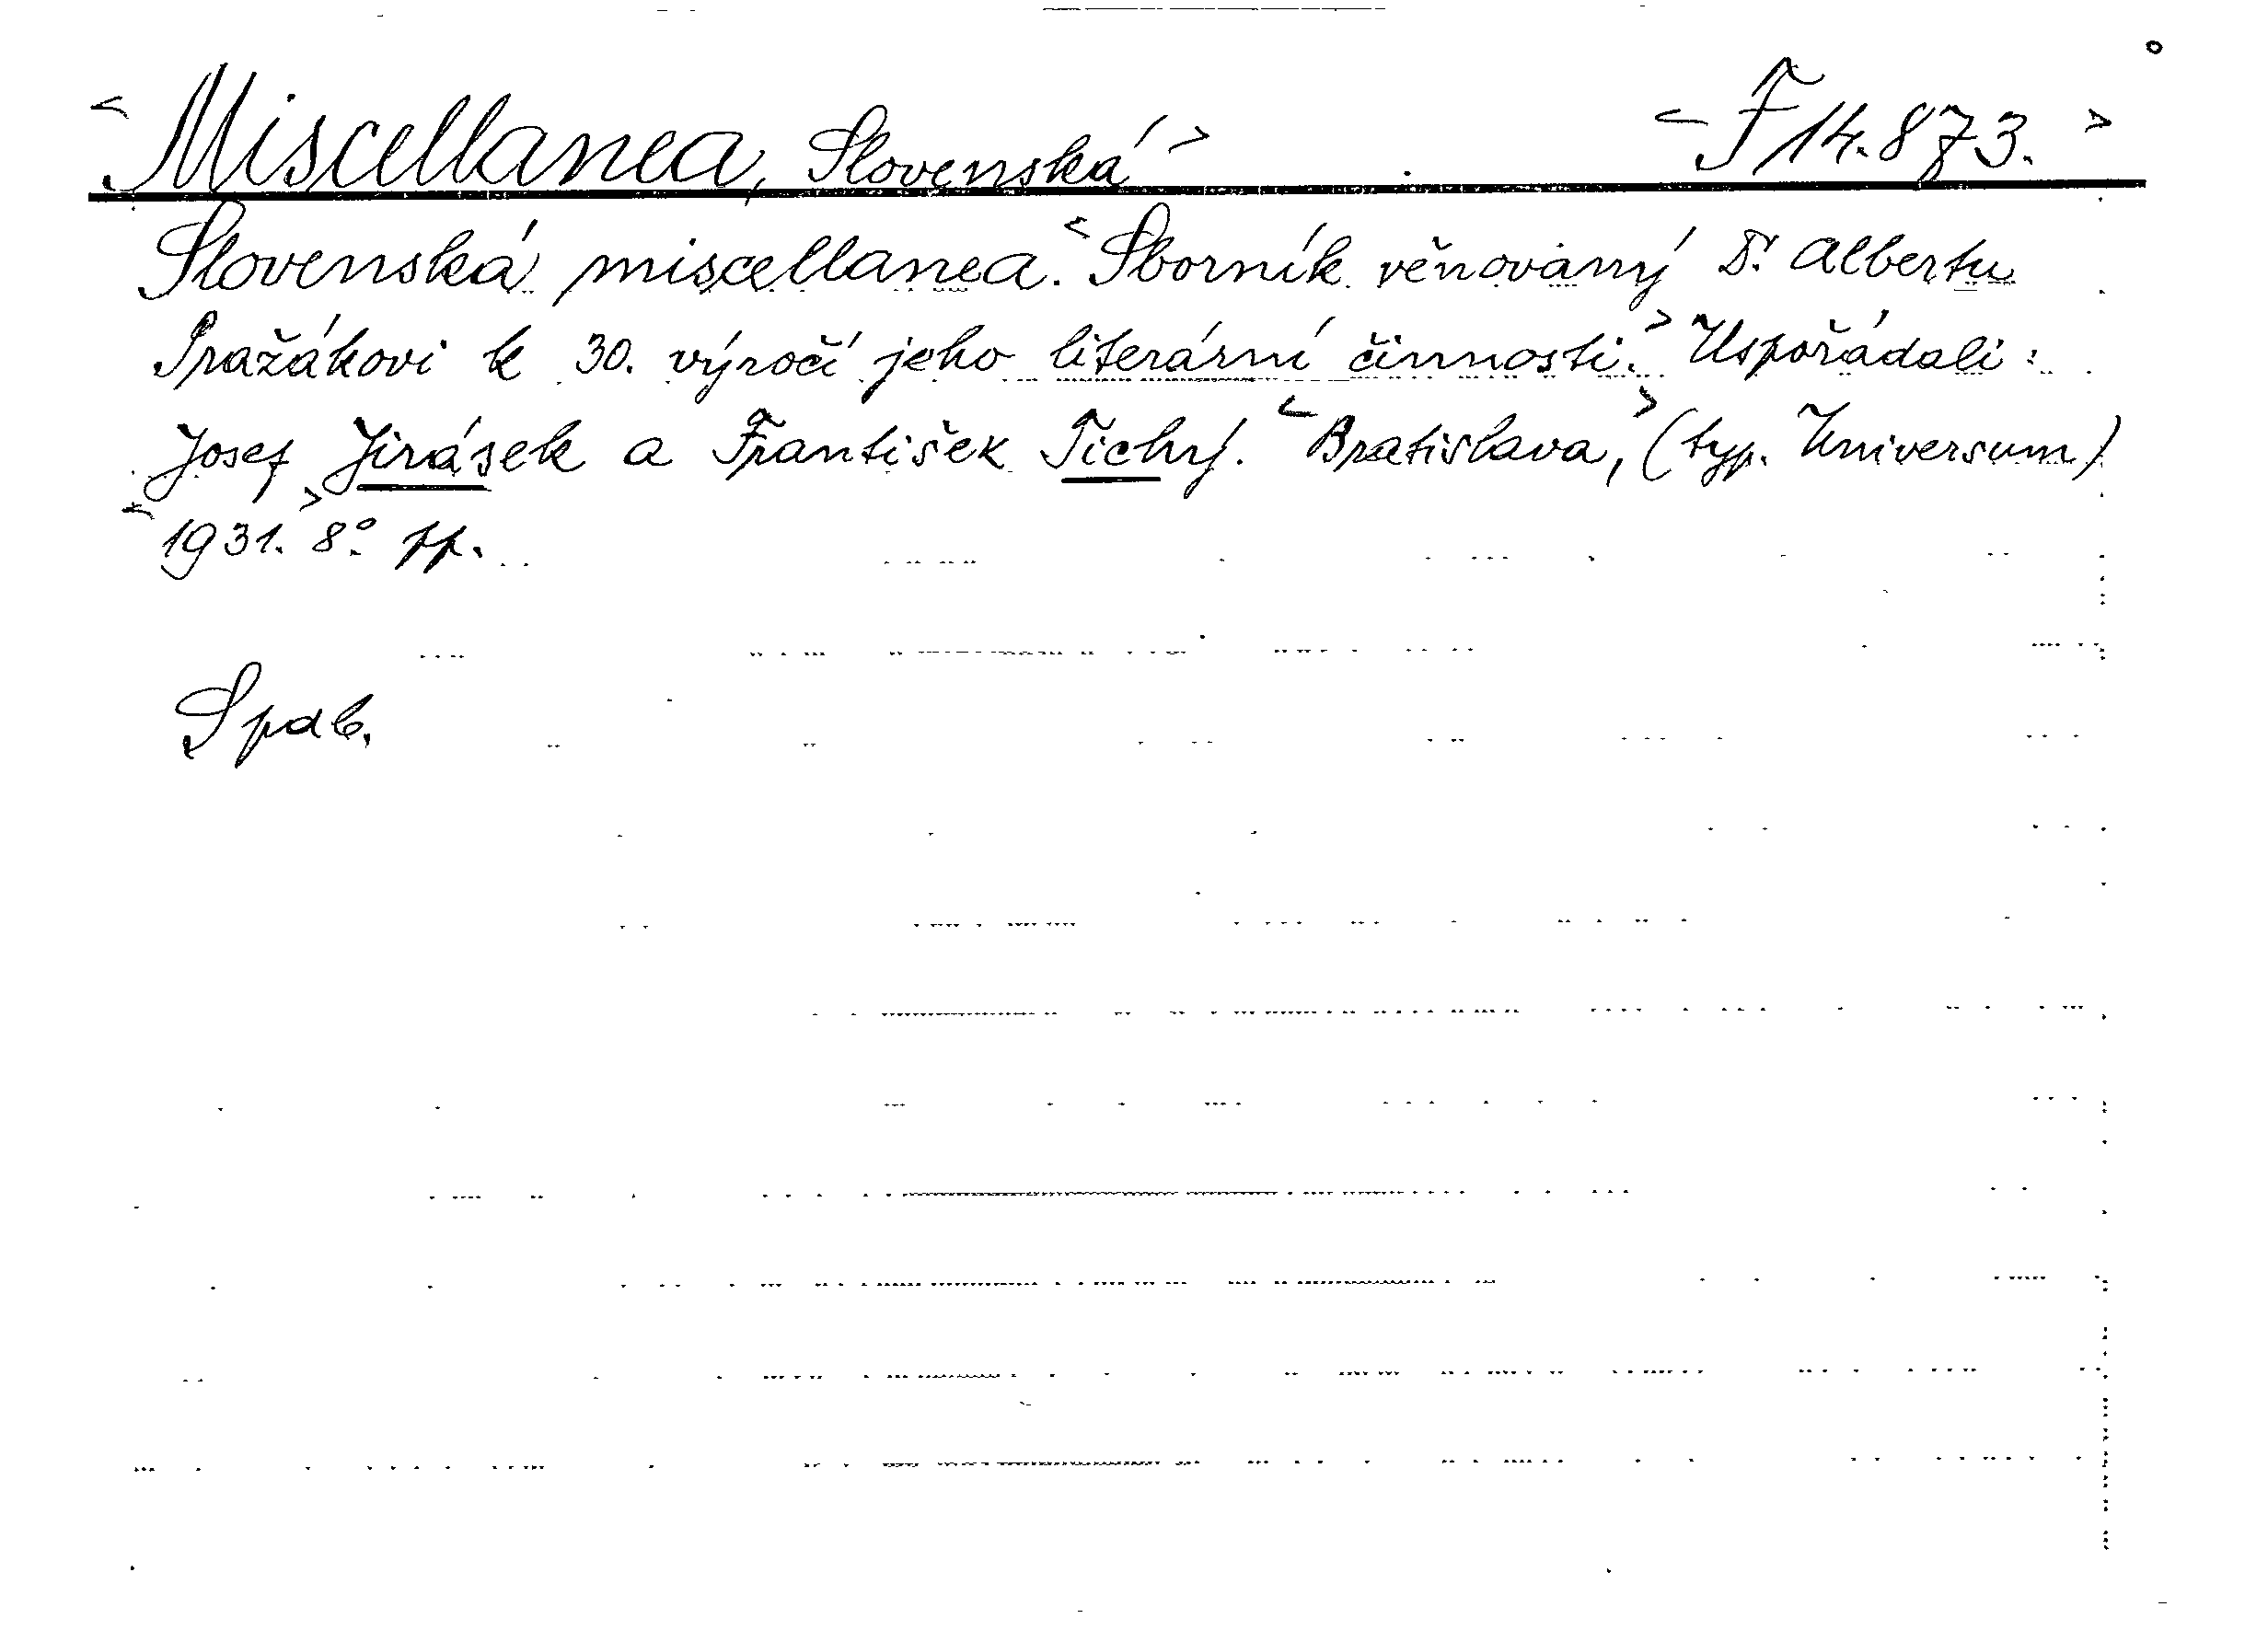 <Miscellanea, Slovenská> <F 14.873.>
Slovenská miscellanea. <Sborník věnovaný Dr. Albertu
Pražákovi k 30. výročí jeho literární činnosti.> Uspořádali:
Josef Jirásek a František Tichý. <Bratislava,> (typ. Universum)
<1931.> 8° pp.
Spdb.